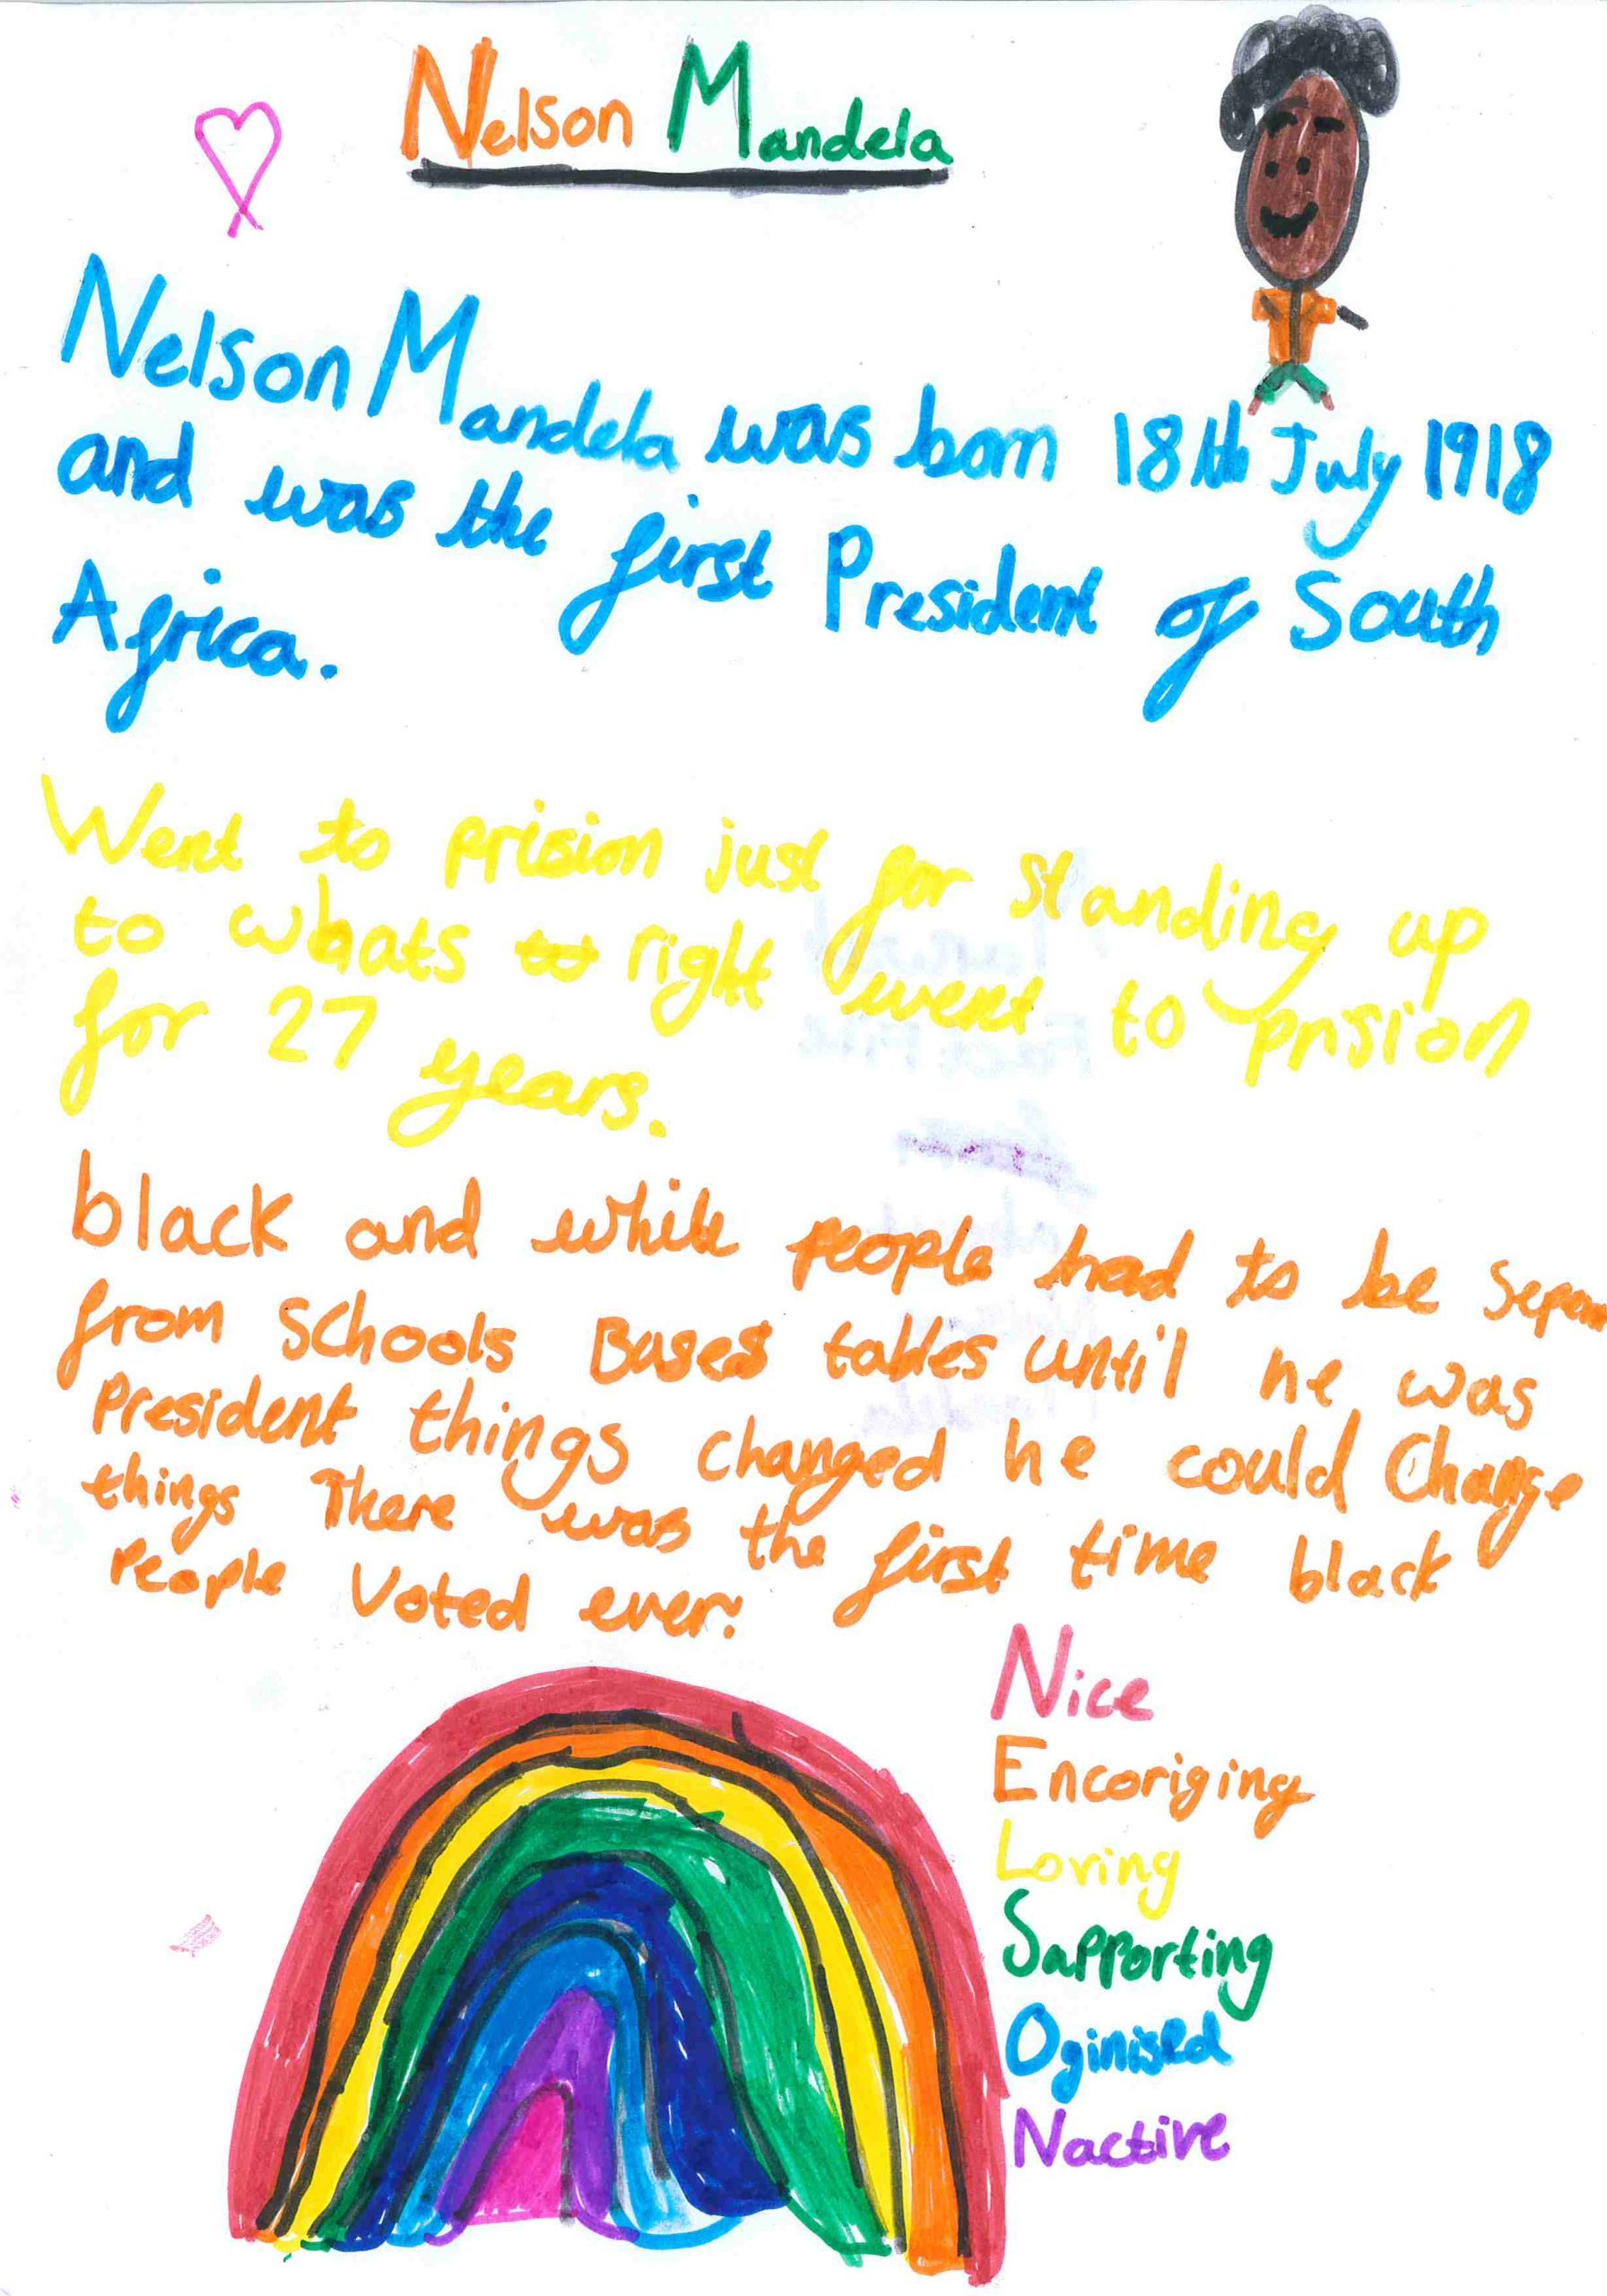 Nelson Mandela
Nelson Mandela was born 18th July 1918
and was the first President of South
Africa.
Went to prision just for standing up
to whats right went to prision
for 27 years.
black and white people had to be Separ
from Schools Buses tables until he was
President things changed he could Change
things There was the first time black
People Voted ever!
Nice
Encoriging
Loving
Supporting
Oginised
Nactive